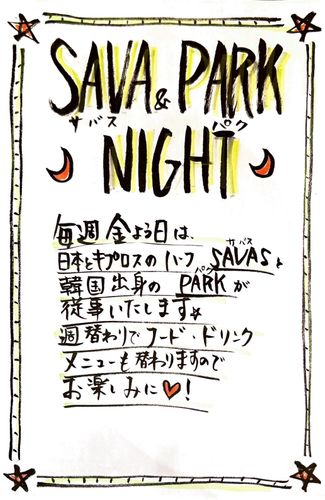 SAVA & PARK
サバス パク
NIGHT
毎週金よう日は、
サバス
日本とキプロスのハーフ SAVASと
パク
韓国出身の PARKが
従事いたします☆
週替わりでフード・ドリンク
メニューも替わりますので
お楽しみに♥!